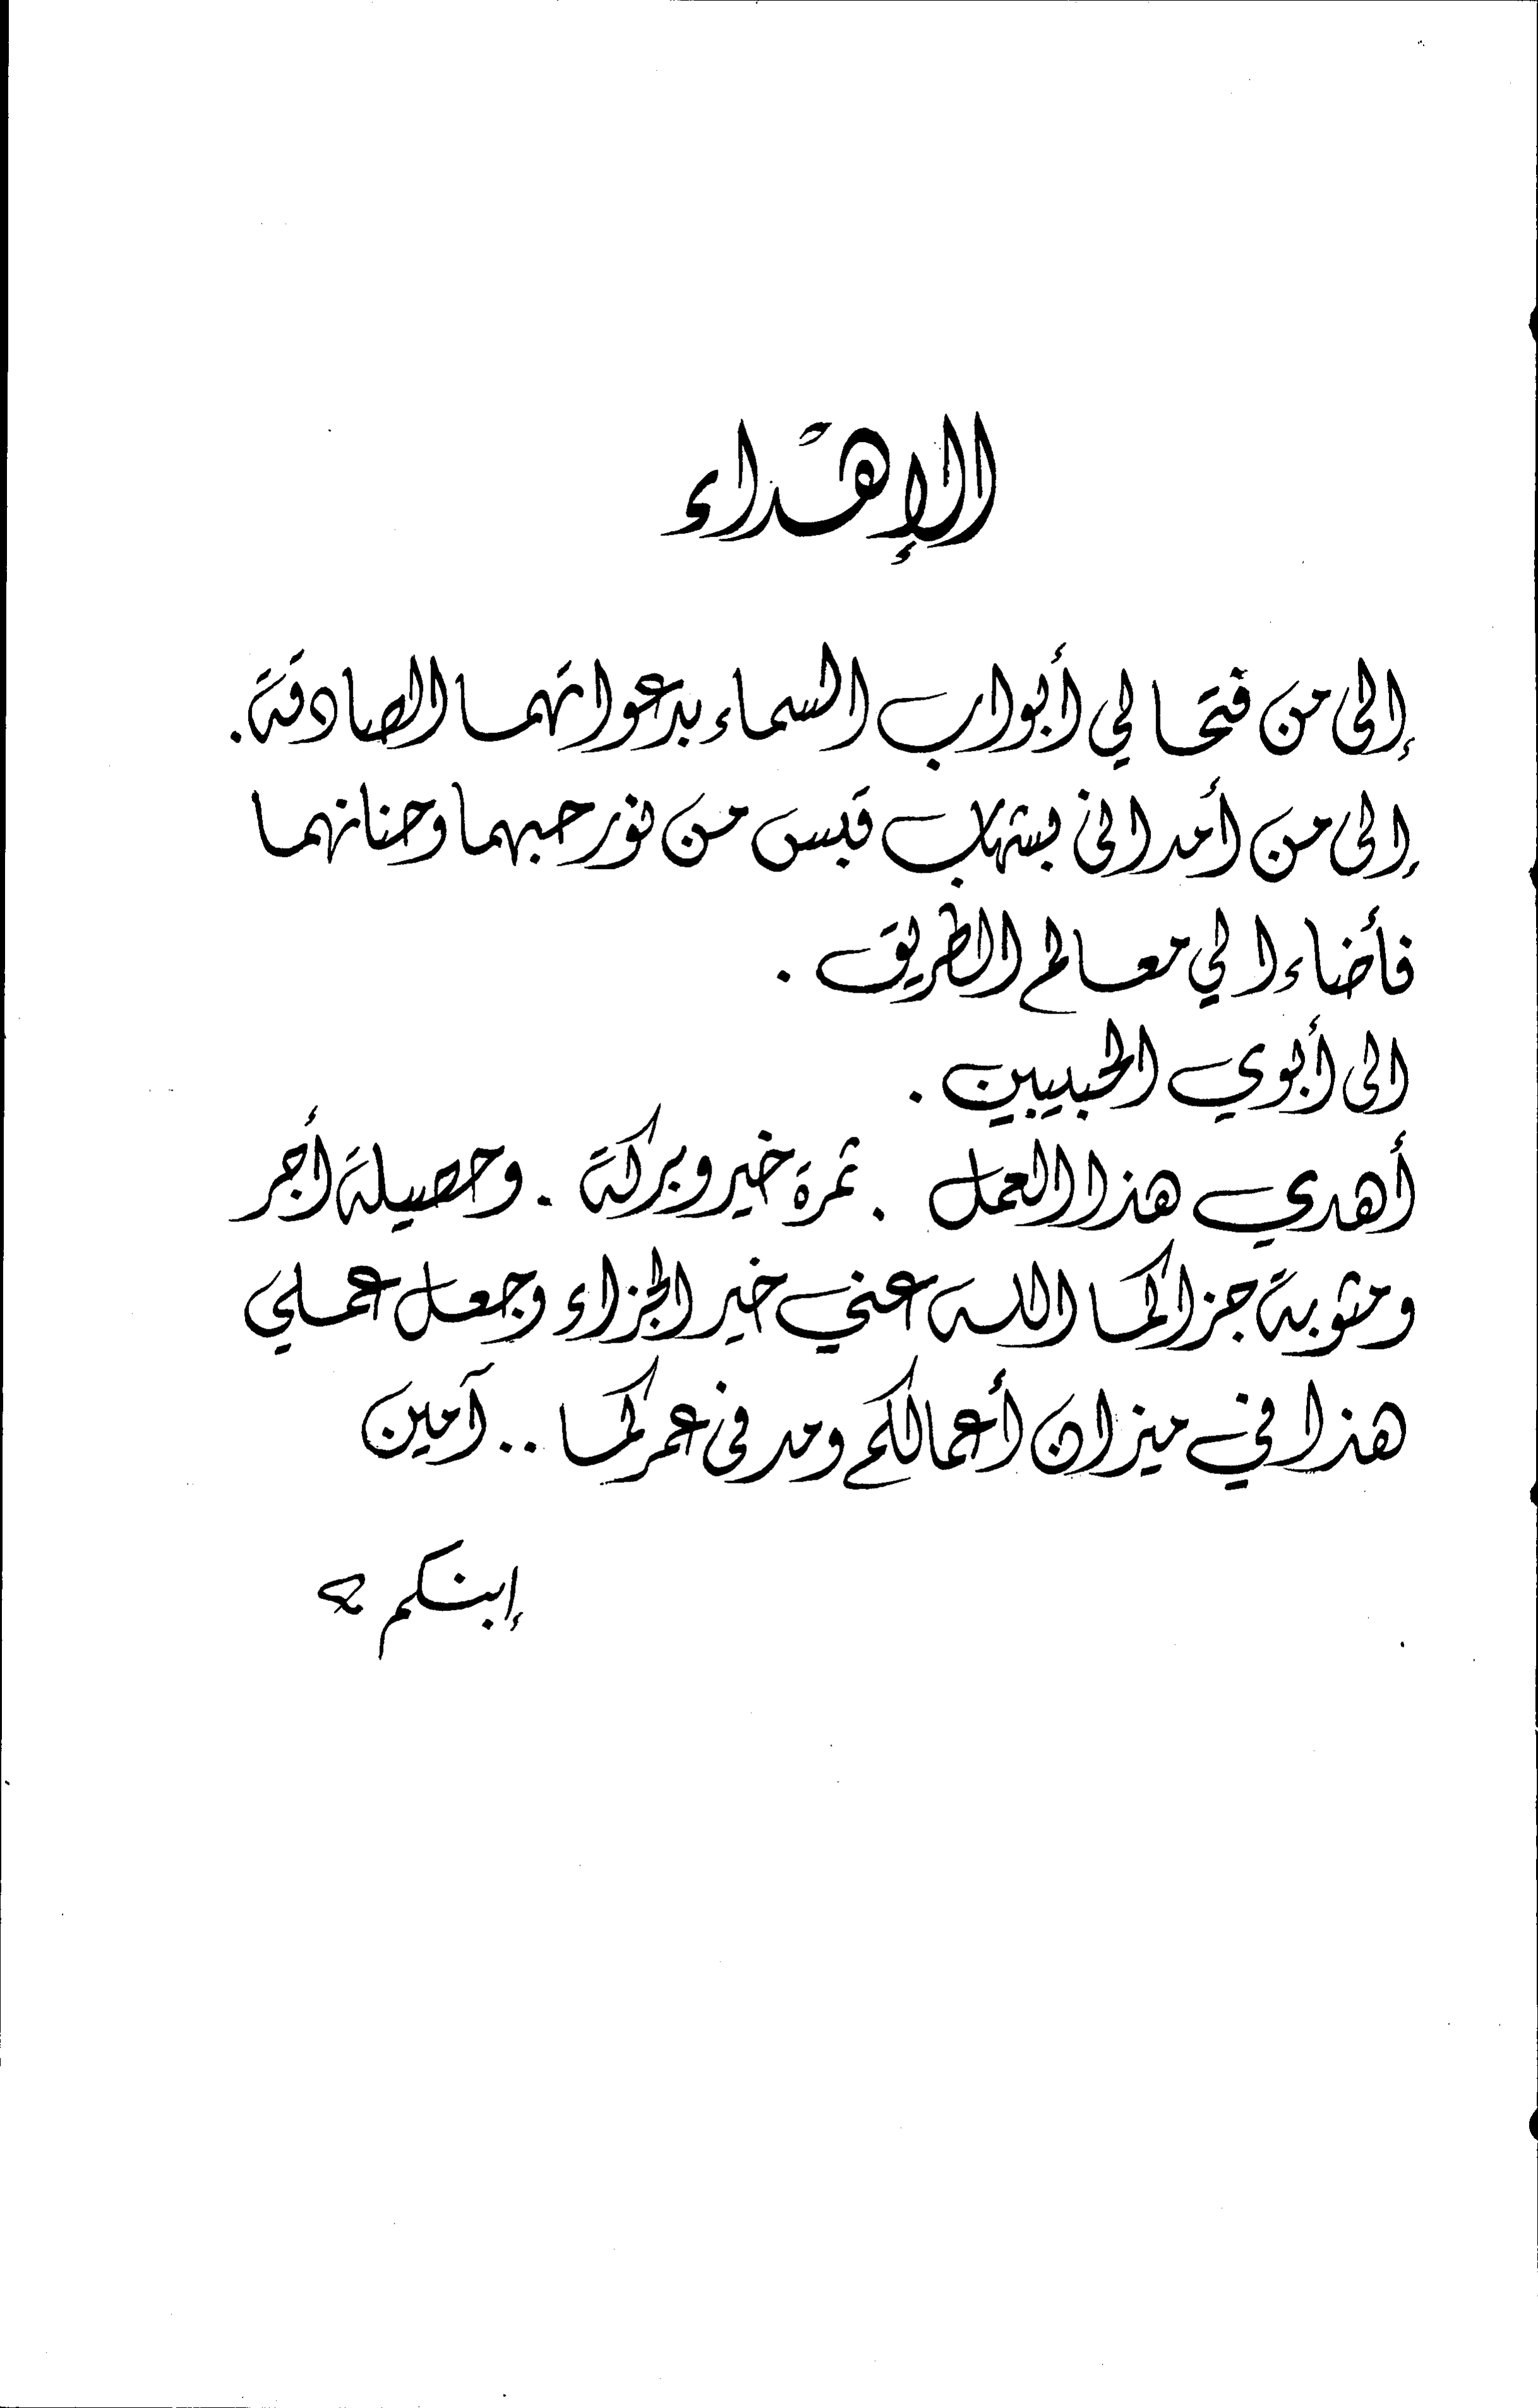 الإهداء
إلى من فتحا لي أبواب السماء بدعواتهما الصادقة .
إلى من أمداني بشهاب قبس من نور حبهما وحنانهما
فأضاءا لي معالم الطريق .
الى أبوي الحبيبين .
أهدي هذا العمل . ثمرة خير وبركة . وحصيلة أجر
ومثوبة جزاكما الله عني خير الجزاء وجعل عملي
هذا في ميزان أعمالكم ومد في عمركما .. آمين
إبنكم